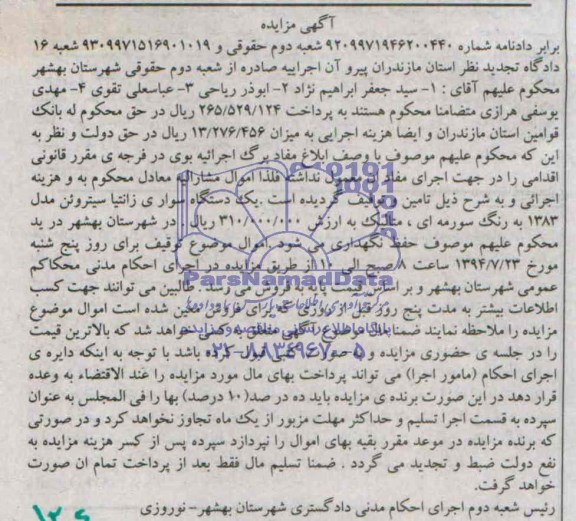 آگهی مزایده
برابر دادنامه شماره ۹۲۰۹۹۷۱۹۴۶۲۰۰۴۴۰ شعبه دوم حقوقی و ۹۳۰۹۹۷۱۵۱۶۹۰۱۰۱۹ شعبه ۱۶
دادگاه تجدید نظر استان مازندران پیرو آن اجراییه صادره از شعبه دوم حقوقی شهرستان بهشهر
محکوم علیهم آقای : ۱- سید جعفر ابراهیم نژاد ۲- ابوذر ریاحی ۳- عباسعلی تقوی ۴- مهدی
یوسفی هرازی متضامنا محکوم هستند به پرداخت ۲۶۵/۵۲۹/۱۲۴ ریال در حق محکوم له بانک
قوامین استان مازندران و ایضا هزینه اجرایی به میزان ۱۳/۲۷۶/۴۵۶ ریال در حق دولت و نظر به
این که محکوم علیهم موصوف با وصف ابلاغ مفاد برگ اجرائیه بوی در فرجه ی مقرر قانونی
اقدامی را در جهت اجرای مفاد آن معمول نداشته فلذا اموال مشارالیه معادل محکوم به و هزینه
اجرائی و به شرح ذیل تامین و توقیف گردیده است .یک دستگاه سواری زانتیا سیتروئن مدل
۱۳۸۳ به رنگ سورمه ای ، متالیک به ارزش ۳۱۰/۰۰۰/۰۰۰ ریال در شهرستان بهشهر در ید
محکوم علیهم موصوف حفظ نگهداری می شود .اموال موضوع توقیف برای روز پنج شنبه
مورخ ۱۳۹۴/۷/۲۳ ساعت ۸ صبح الی ۱۰ از طریق مزایده در اجرای احکام مدنی محکاکم
عمومی شهرستان بهشهر و بر اساس به فروش می رسد . طالبین می توانند جهت کسب
اطلاعات بیشتر به مدت پنج روز قبل از روزی که برای فروش معین شده است اموال موضوع
مزایده را ملاحظه نمایند ضمنا مال موضوع آگهی متعلق به کسی خواهد شد که بالاترین قیمت
را در جلسه ی حضوری مزایده و کتبی قبول کرده باشد با توجه به اینکه دایره ی
اجرای احکام (مامور اجرا) می تواند پرداخت بهای مال مورد مزایده را عند الاقتضاء به وعده
قرار دهد در این صورت برنده ی مزایده باید ده در صد(۱۰ درصد) بها را فی المجلس به عنوان
سپرده به قسمت اجرا تسلیم و حداکثر مهلت مزبور از یک ماه تجاوز نخواهد کرد و در صورتی
که برنده مزایده در موعد مقرر بقیه بهای اموال را نپردازد سپرده پس از کسر هزینه مزایده به
نفع دولت ضبط و تجدید می گردد . ضمنا تسلیم مال فقط بعد از پرداخت تمام ان صورت
خواهد گرفت.
رئیس شعبه دوم اجرای احکام مدنی دادگستری شهرستان بهشهر- نوروزی
ParsNamadData
۰۲۱-۸۸۳۴۹۶۷۰-۵